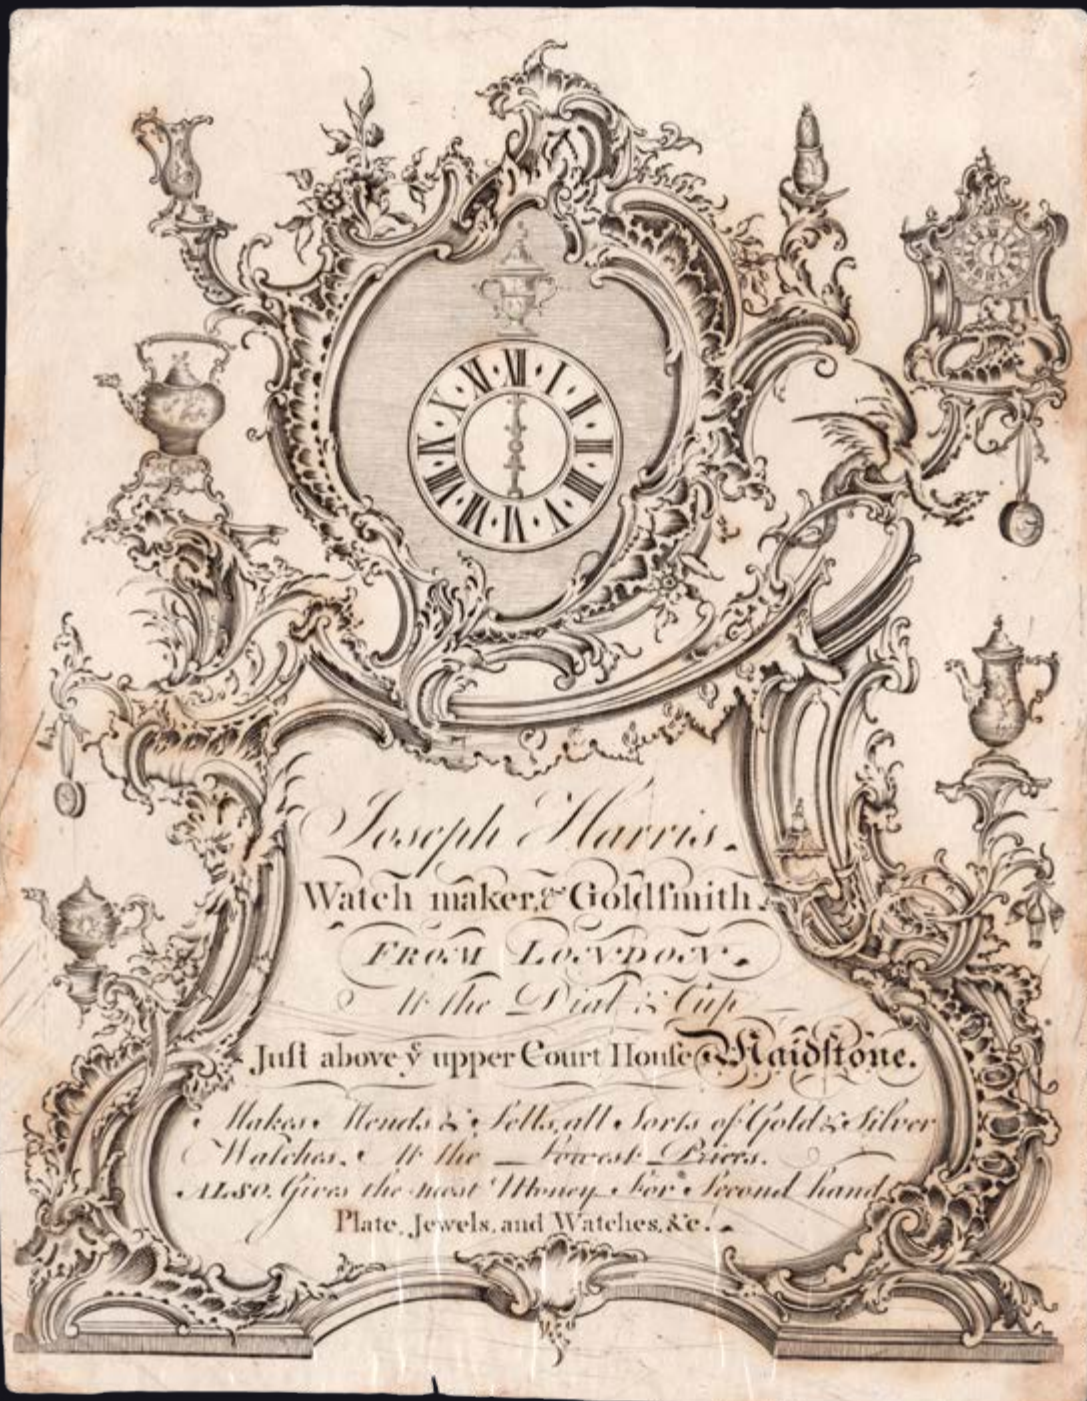 XII I II III IIII V VI VII VIII IX X XI
Joseph Harris.
Watch maker, & Goldſmith.
FROM LONDON.
At the Dial & Cup
Juſt above yͤ upper Court Houſe Maidſtone.
Makes Mends & Sells, all Sorts of Gold & Silver
Watches. At the Lowest Prices.
ALSO. Gives the most Money For Second hand
Plate, Jewels, and Watches, &c.